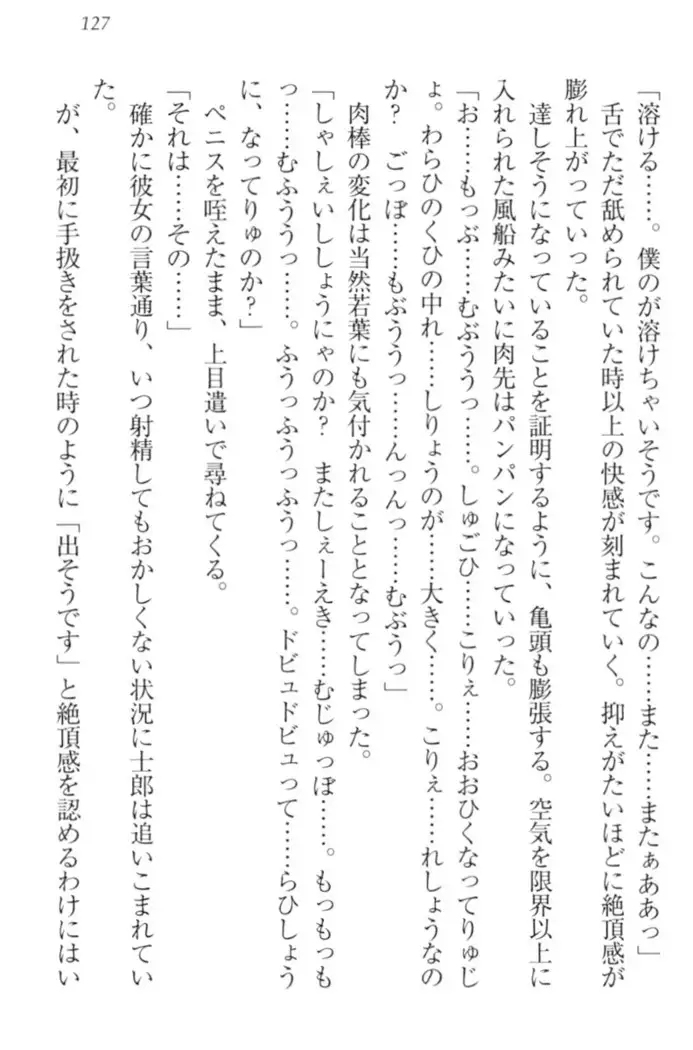 127
「溶ける……。僕のが溶けちゃいそうです。こんなの……また……またぁああっ」
舌でただ舐められていた時以上の快感が刻まれていく。抑えがたいほどに絶頂感が
膨れ上がっていった。
達しそうになっていることを証明するように、亀頭も膨張する。空気を限界以上に
入れられた風船みたいに肉先はパンパンになっていった。
「お……もっぶ……むぶううっ……。しゅごひ……こりぇ……おおひくなってりゅじ
ょ。わらひのくひの中れ……しりょうのが……大きく……。こりぇ……れしょうなの
か？　ごっぽ……もぶううっ……んっんっ……むぶうっ」
肉棒の変化は当然若葉にも気付かれることとなってしまった。
「しゃしぇいししょうにゃのか？　またしぇーえき……むじゅっぽ……。もっもっも
っ……むふううっ……。ふうっふうっふうっ……。ドビュドビュって……らひしょう
に、なってりゅのか？」
ペニスを咥えたまま、上目遣いで尋ねてくる。
「それは……その……」
確かに彼女の言葉通り、いつ射精してもおかしくない状況に士郎は追いこまれてい
た。
が、最初に手扱きをされた時のように「出そうです」と絶頂感を認めるわけにはい